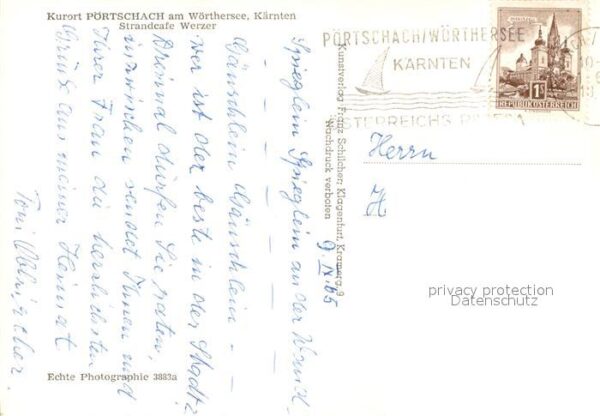 Kurort PÖRTSCHACH am Wörthersee, Kärnten
Strandcafe Werzer
Spieglein Spieglein an der Wand -
- - - - -
Gänschlein Gänschlein - -
wer ist der beste in der Stadt?
Dreimal dürfen Sie raten,
inzwischen sendet Ihnen und
Ihrer Frau die herzlichsten
Grüße aus meiner Heimat
Toni
9. IX. 65
Echte Photographie 3883a
Kunstverlag Franz Schilcher, Klagenfurt, Kramerg. 9
Nachdruck verboten
PÖRTSCHACH/WÖRTHERSEE
KÄRNTEN
ÖSTERREICHS RIVIERA
1S
REPUBLIK ÖSTERREICH
Herrn
H
privacy protection
Datenschutz